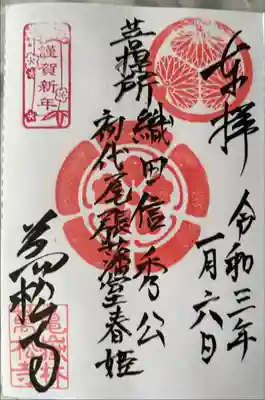 奉拝
令和三年
一月六日
菩提所織田信秀公
初代尾張藩室春姫
萬松寺
謹賀新年
亀嶽林
萬松寺